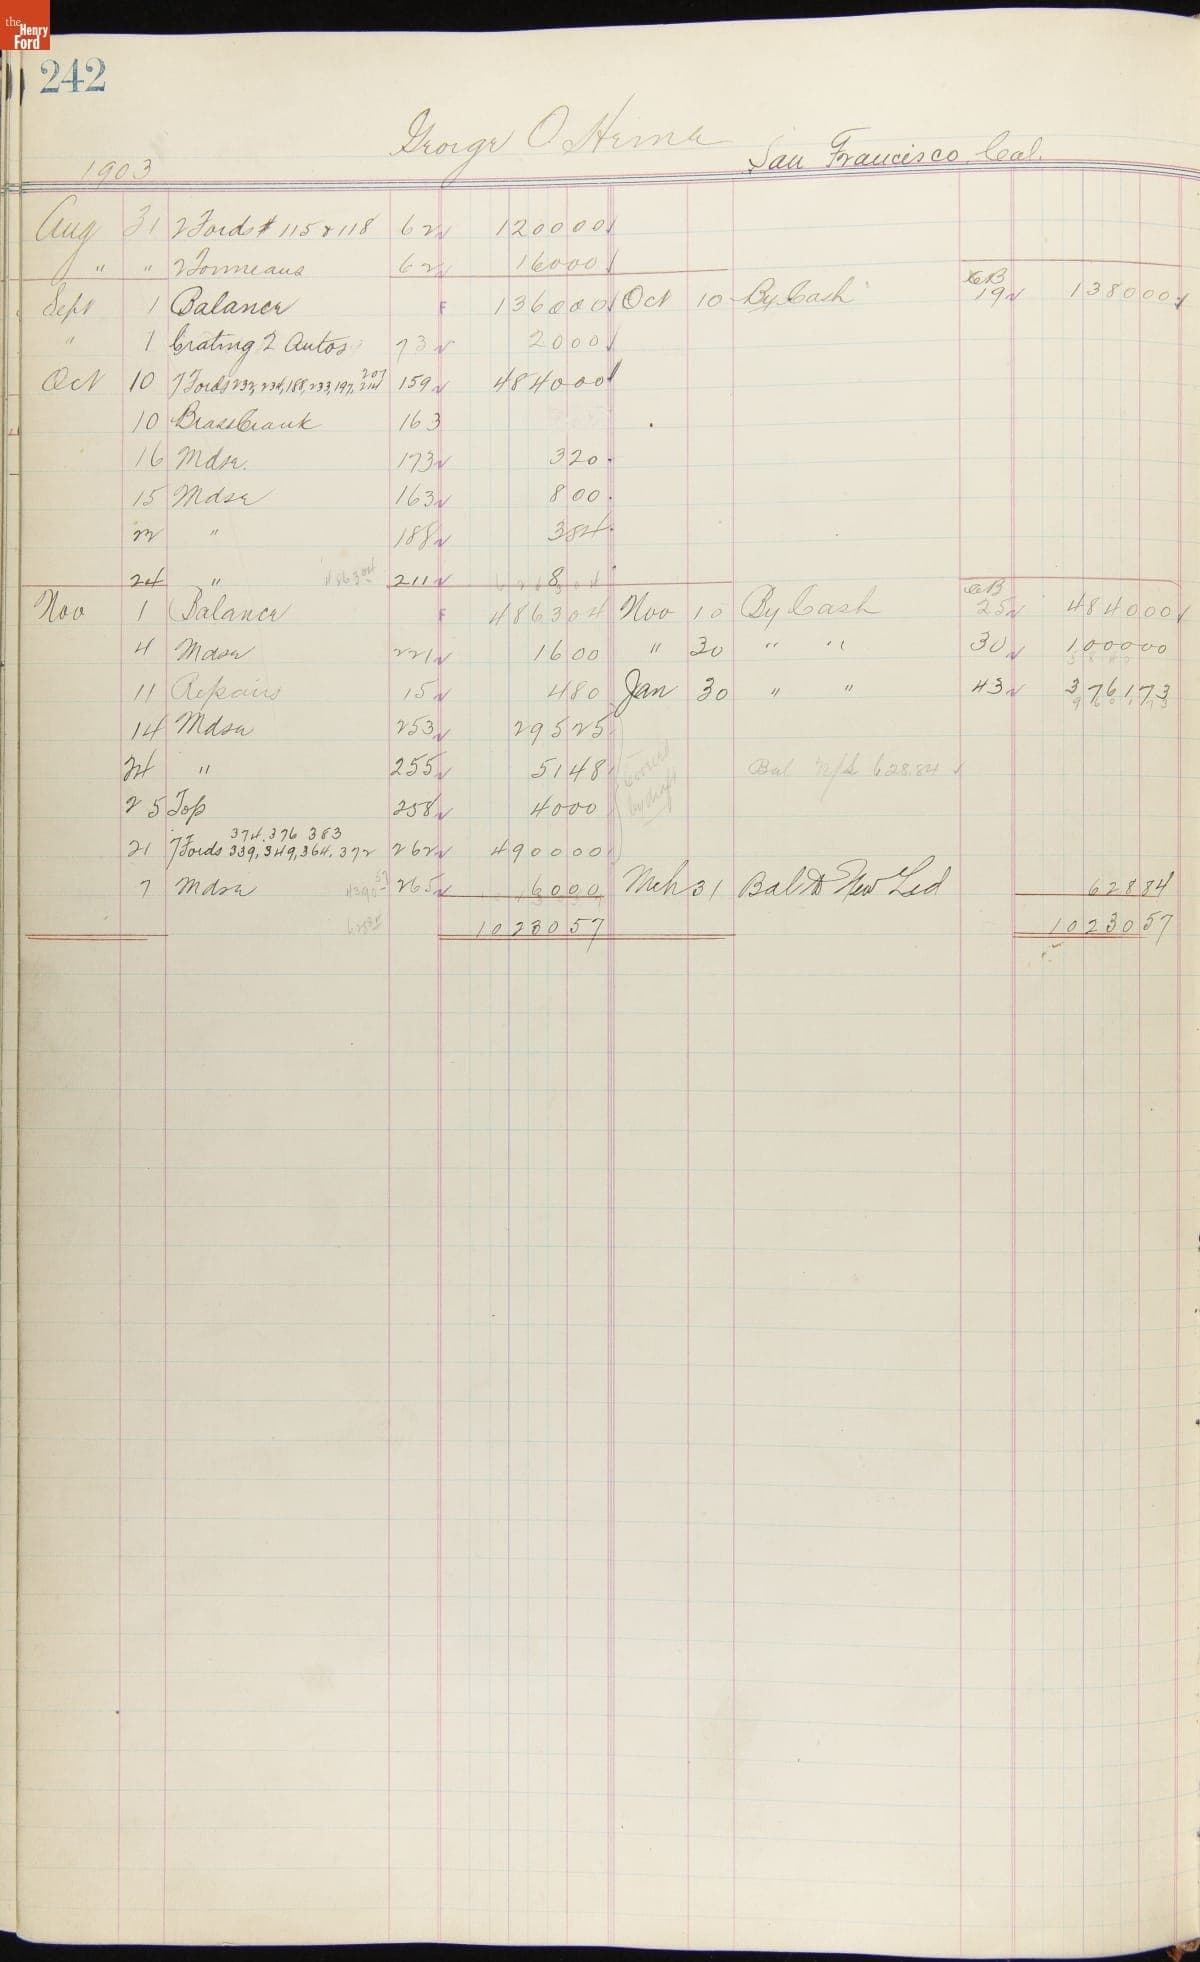 the Henry Ford
242
George O Heine San Francisco, Cal.
1903
Aug 31 2 Fords # 115 & 118 62 120000
" " 2 Tonneaus 62 16000
CB
Sept 1 Balance F 136000 Oct 10 By Cash 19 138000
" 1 Crating 2 Autos 73 2000
207
Oct 10 7 Fords 232, 234, 188, 233, 197, 214 159 484000
10 Brass Crank 163
16 Mdse. 173 320
15 Mdse 163 800
22 " 188 384
24 " 486304 211 8
CB
Nov 1 Balance F 486304 Nov 10 By Cash 25 484000
4 Mdse 221 1600 " 30 " " 30 100000
11 Repairs 15 480 Jan 30 " " 43 376173
14 Mdse 253 29525
24 " 255 5148 Covered by draft Bal 628.84
25 Top 258 4000
374, 376 383
21 7 Fords 339, 349, 364, 372 262 490000
7 Mdse 439057 265 6000 Mch 31 Bal to New Led 62884
62884 1023057 1023057